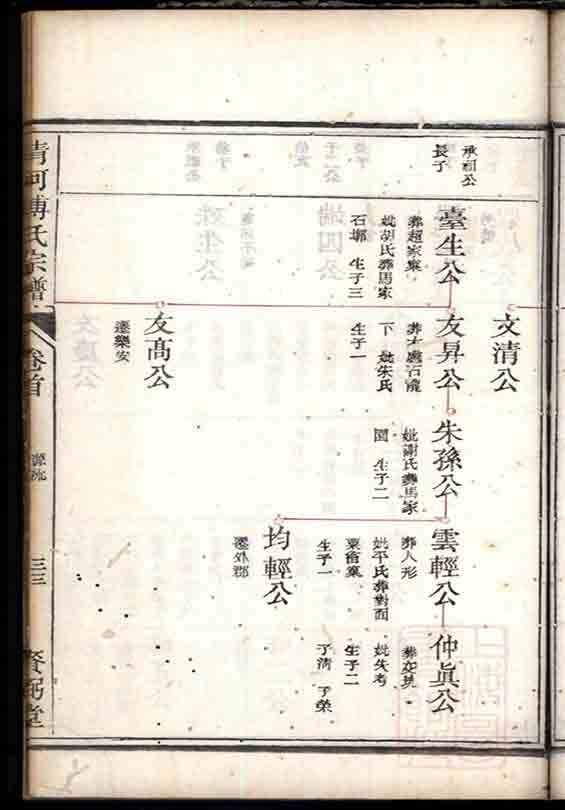 承祖公
長子
臺生公
葬趙家窠
妣胡氏葬馬家
石塘 生子三
文清公
友昇公
葬大
下 妣朱氏
生子一
友高公
遷樂安
朱孫公
妣謝氏葬馬家
園 生子二
雲輕公
葬人形
妣平氏葬對面
粟倉窠
生子一
均輕公
遷外郡
仲眞公
妣失考
生子二
子清 子榮
清河傅氏宗譜
卷首
源流
三三
賚弼堂